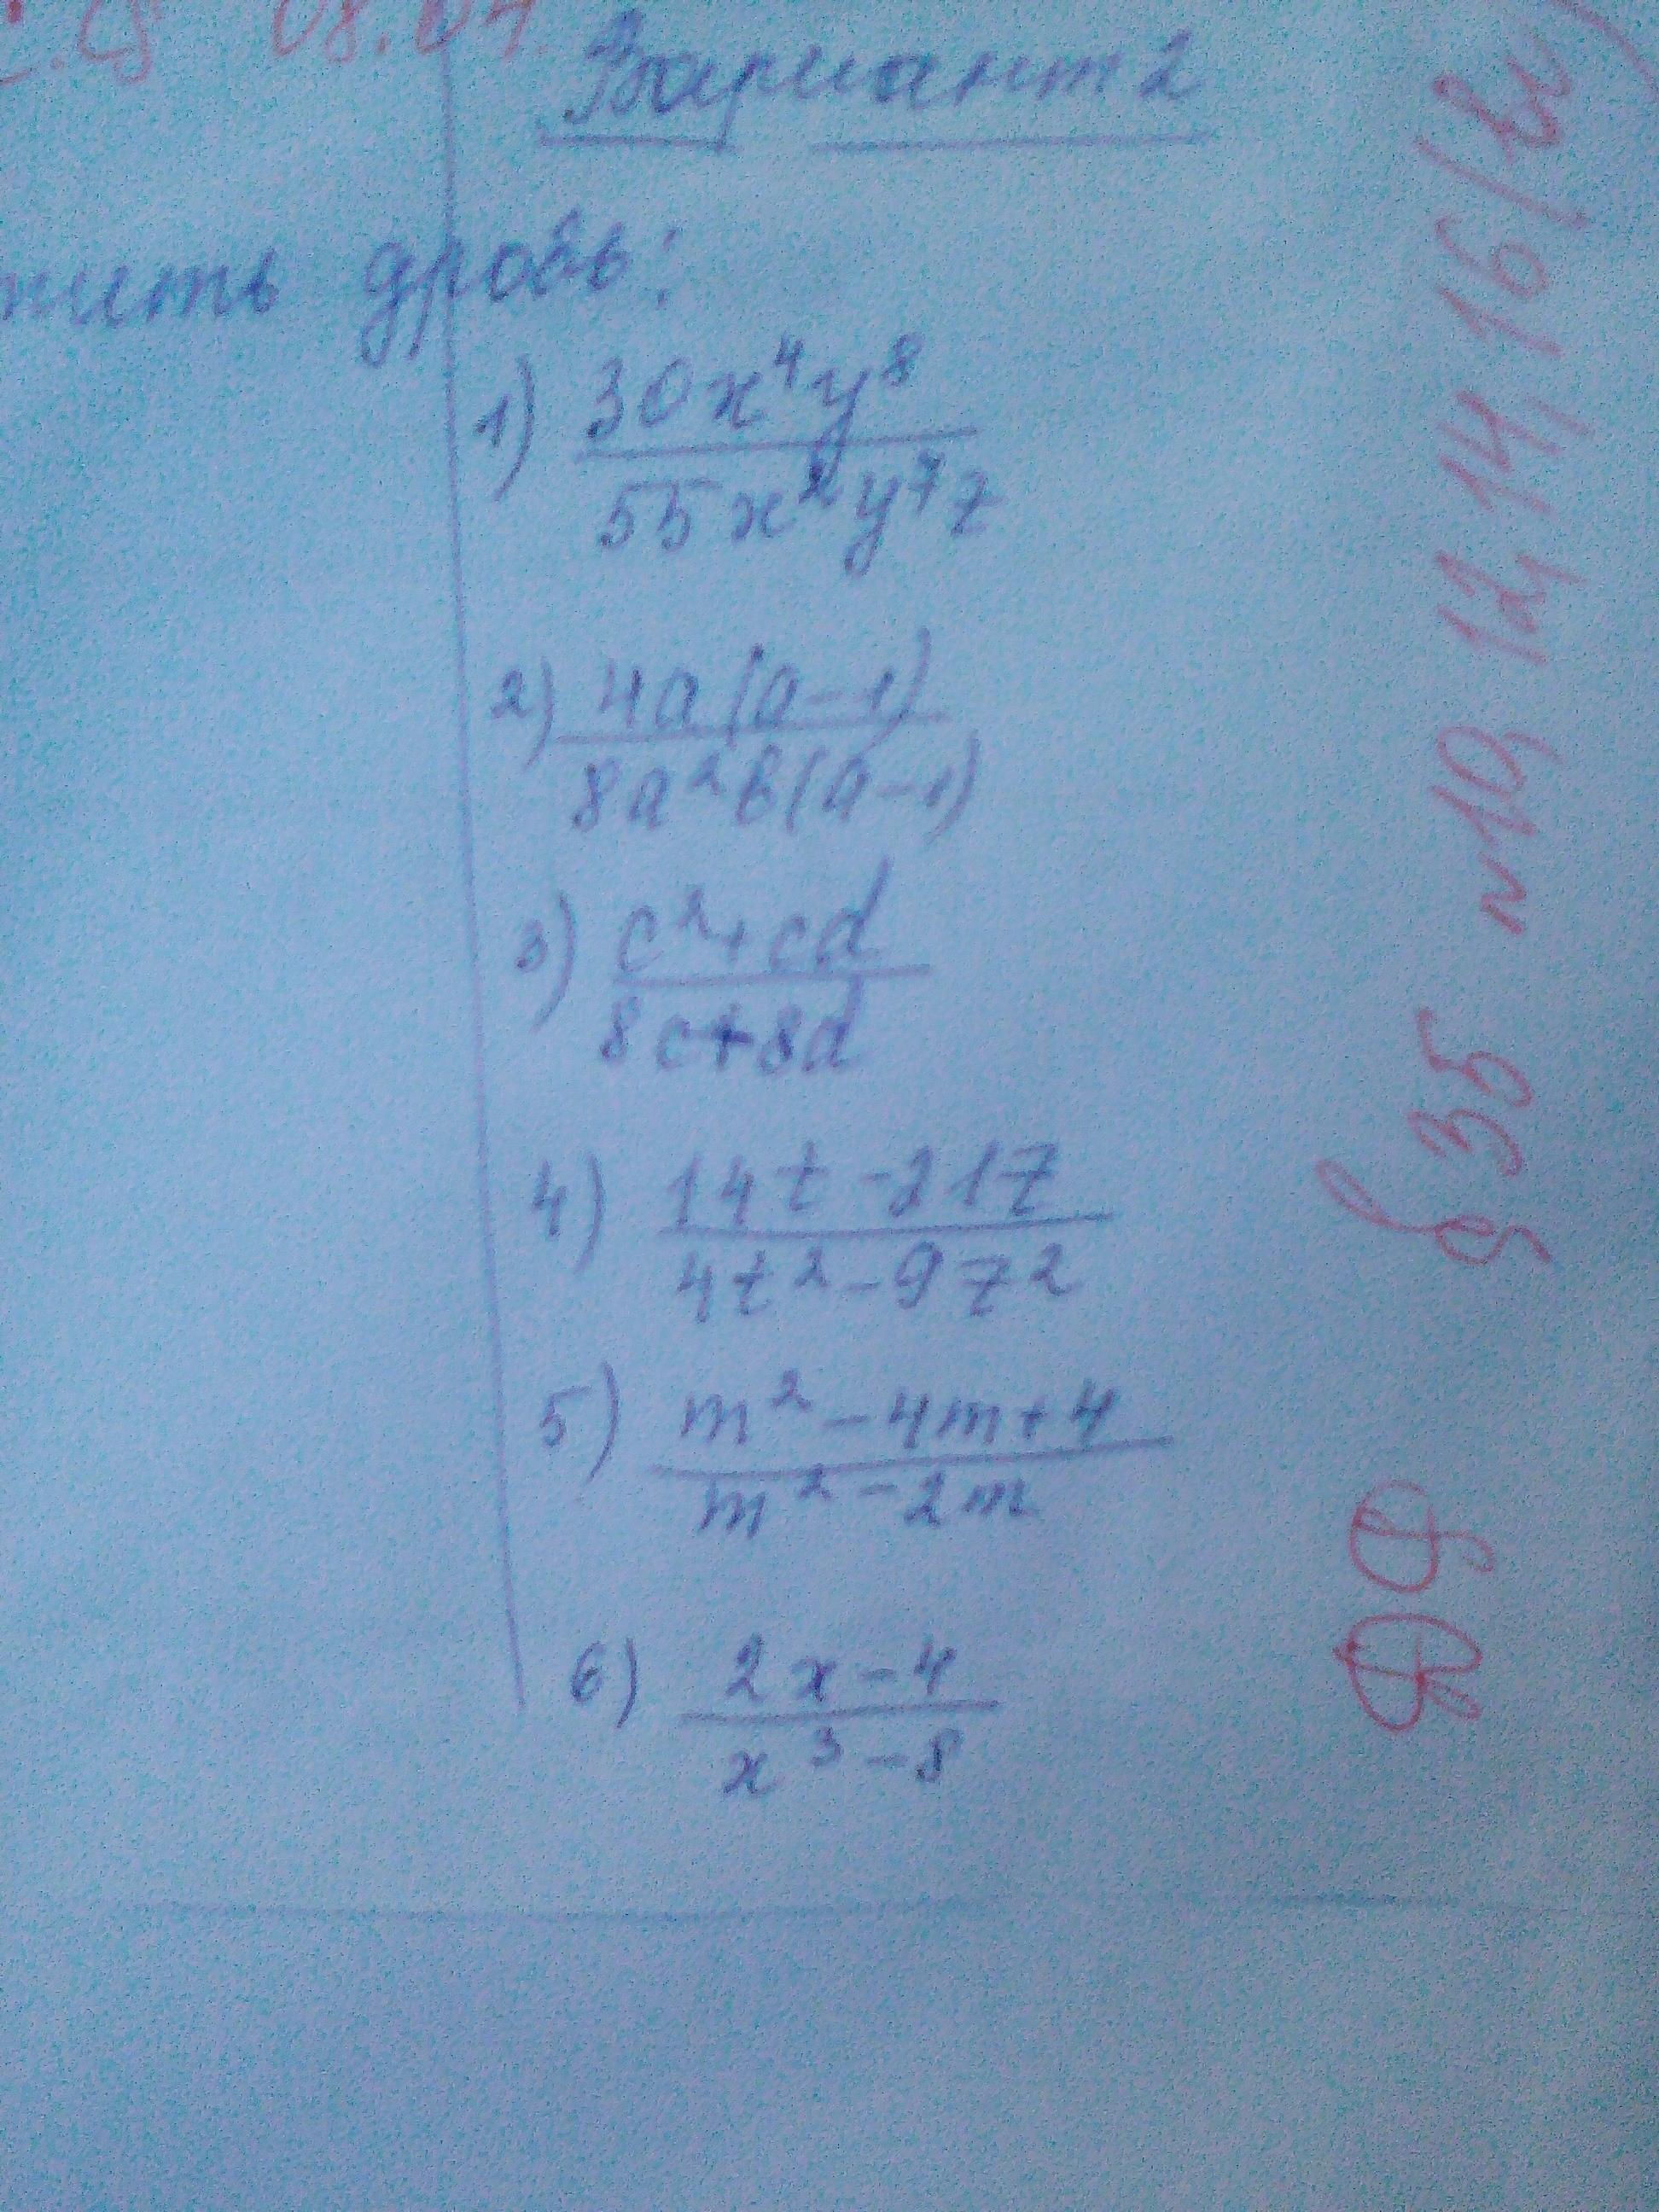 08.04.
Вариант 2
тить дробь:
1) 30x⁴y⁸
55x²y⁷z
2) 4a(a-1)
8a²b(a-1)
3) c²+cd
8c+8d
4) 14t-21z
4t²-9z²
5) m²-4m+4
m²-2m
6) 2x-4
x³-8
§35 №10, 12, 14, 16